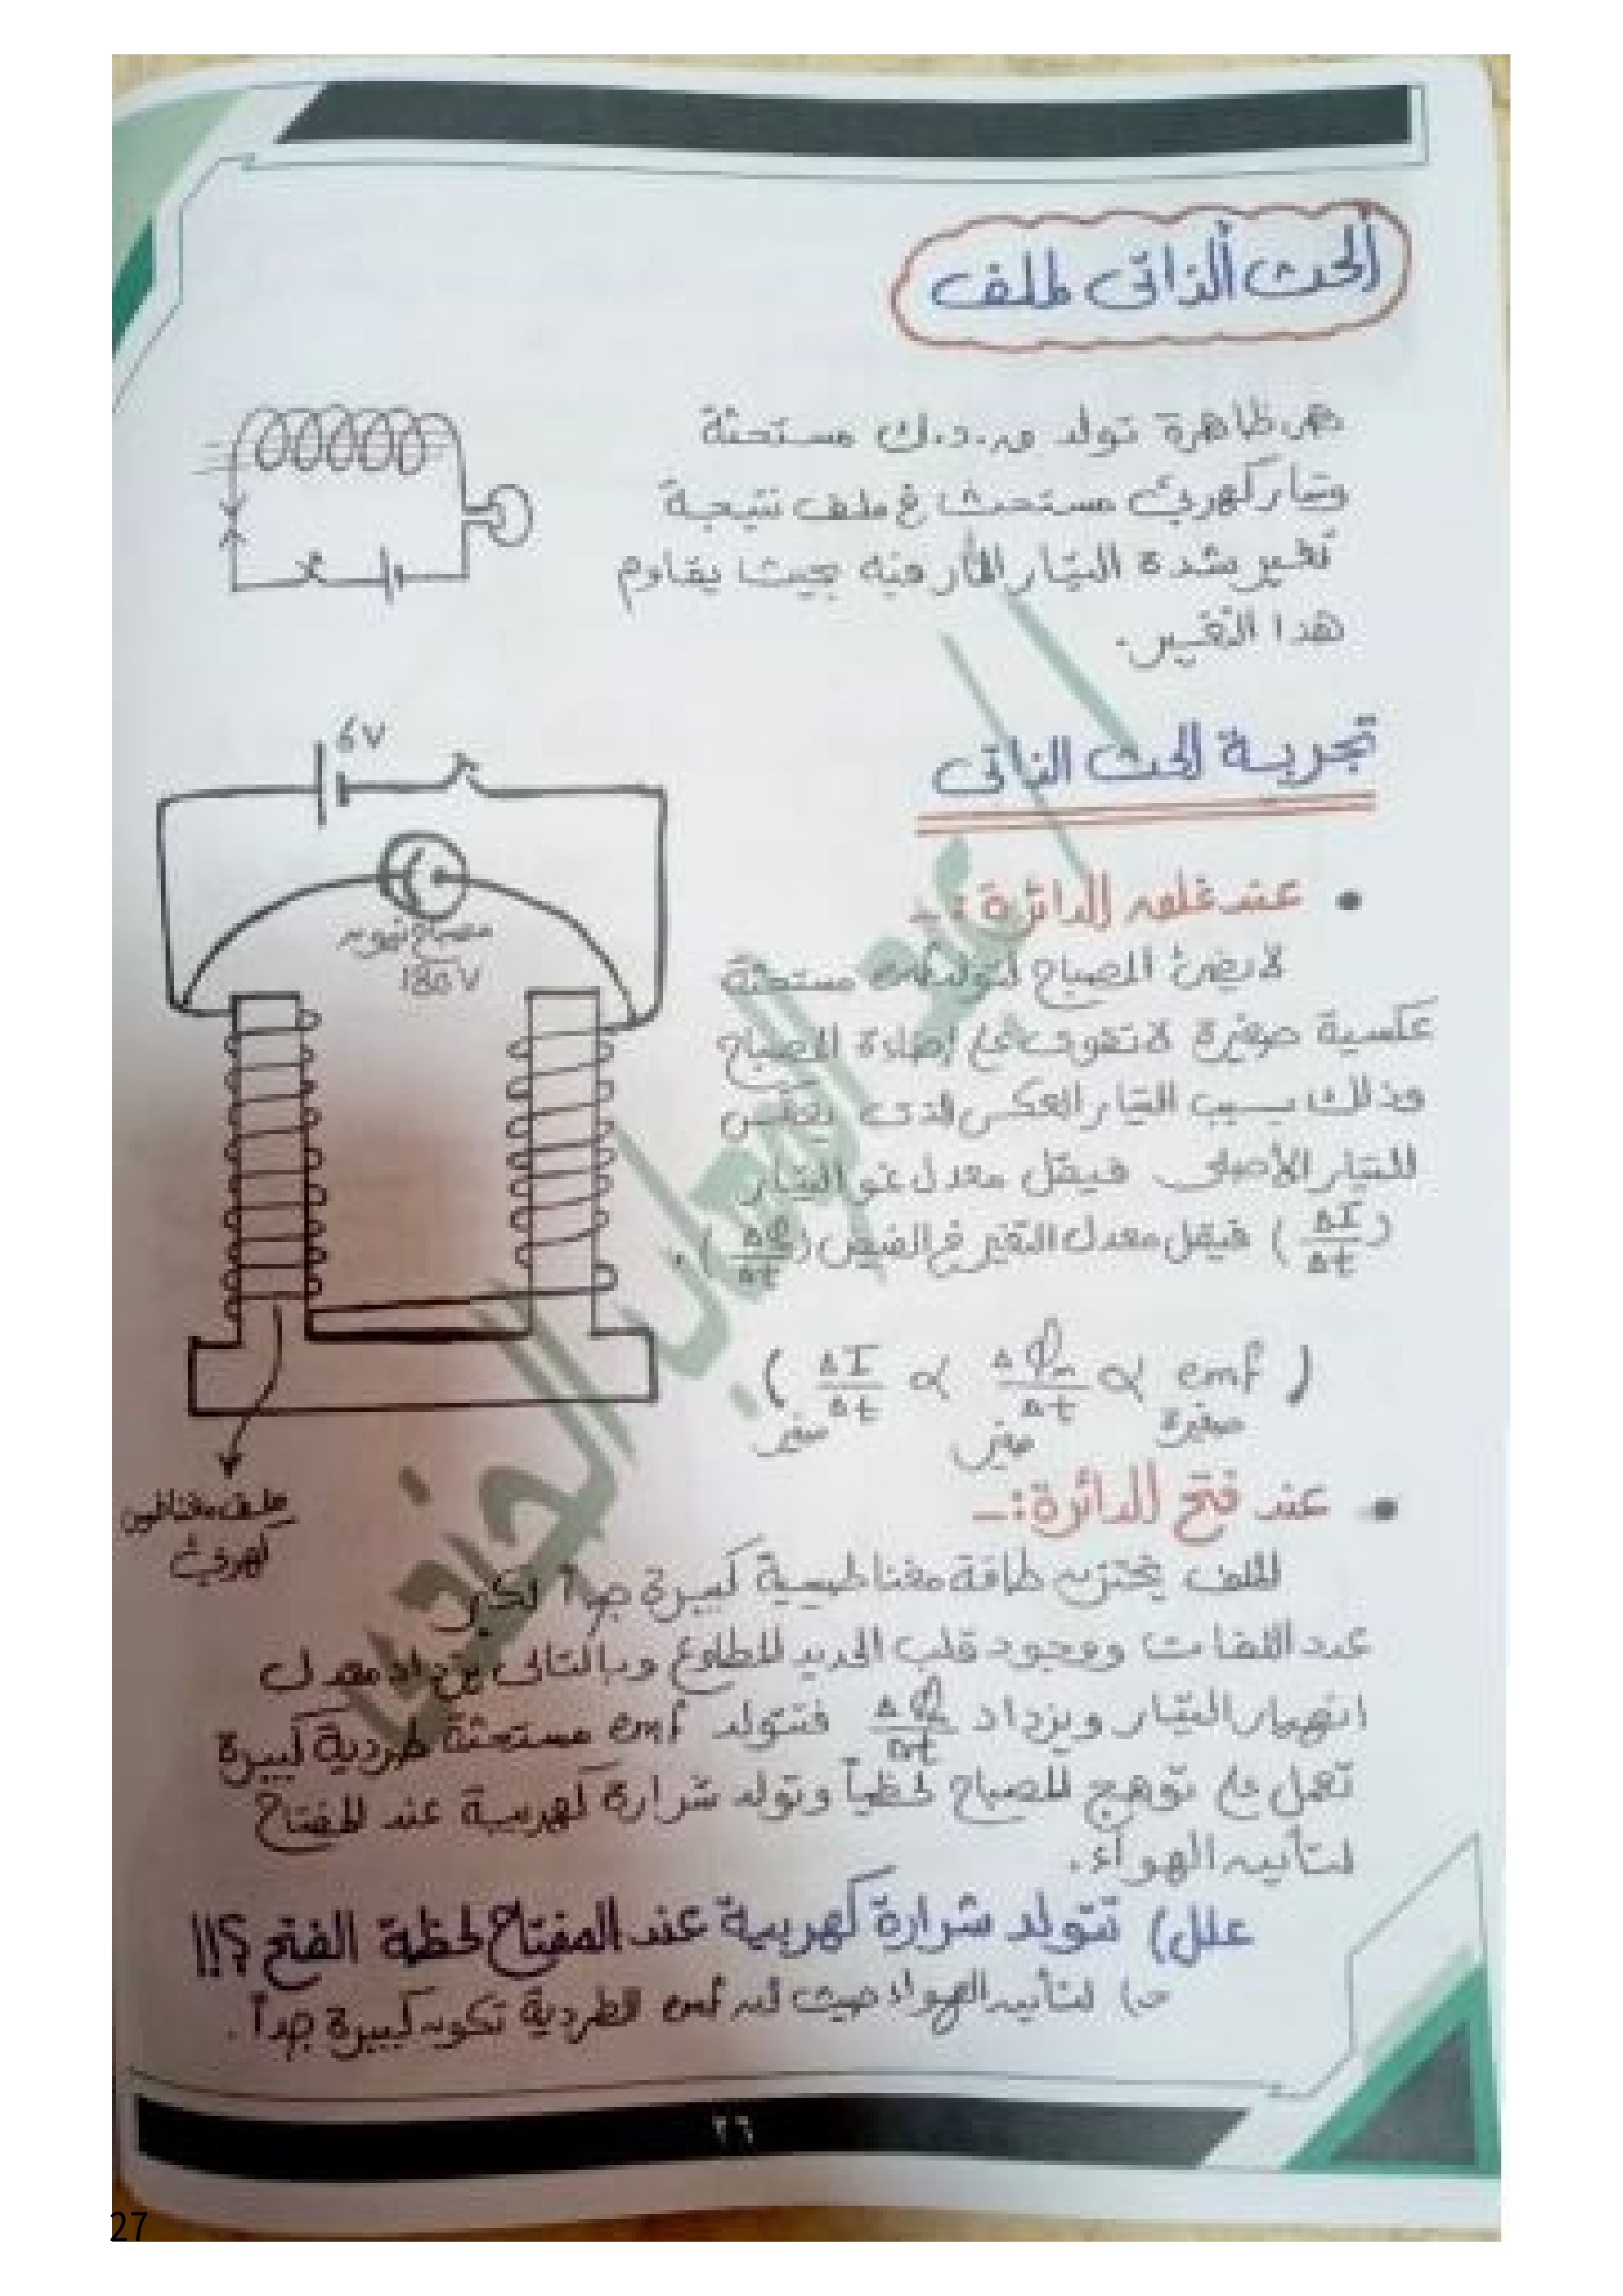 الحث الذاتى لملف
هى ظاهرة تولد ق.د.ك مستحثة
وتيار كهربى مستحث فى ملف نتيجة
تغير شدة التيار المار فيه بحيث يقاوم
هذا التغير.
6V
تجربة الحث الذاتى
• عند غلق الدائرة :-
مصباح نيون
180V
لا يضئ المصباح لتولد emf مستحثة
عكسية صغيرة لا تقوى على إضاءة المصباح
وذلك بسبب التيار العكسى الذى
للتيار الأصلى فيقل معدل نمو التيار
(ΔI/Δt) فيقل معدل التغير فى الفيض (Δφ/Δt).
( emf ∝ Δφm/Δt ∝ ΔI/Δt )
صغيرة صغير صغير
ملف مغناطيس
كهربى
• عند فتح الدائرة :-
الملف يختزن طاقة مغناطيسية كبيرة جداً لكبر
عدد اللفات ووجود قلب الحديد المطاوع وبالتالى يزداد معدل
انهيار التيار ويزداد Δφ/Δt فتتولد emf مستحثة طردية كبيرة
تعمل على توهج المصباح لحظياً وتولد شرارة كهربية عند المفتاح
لتأين الهواء.
علل) تتولد شرارة كهربية عند المفتاح لحظة الفتح ؟!!
جـ) لتأين الهواء حيث أن emf الطردية تكون كبيرة جداً.
٢٦
27